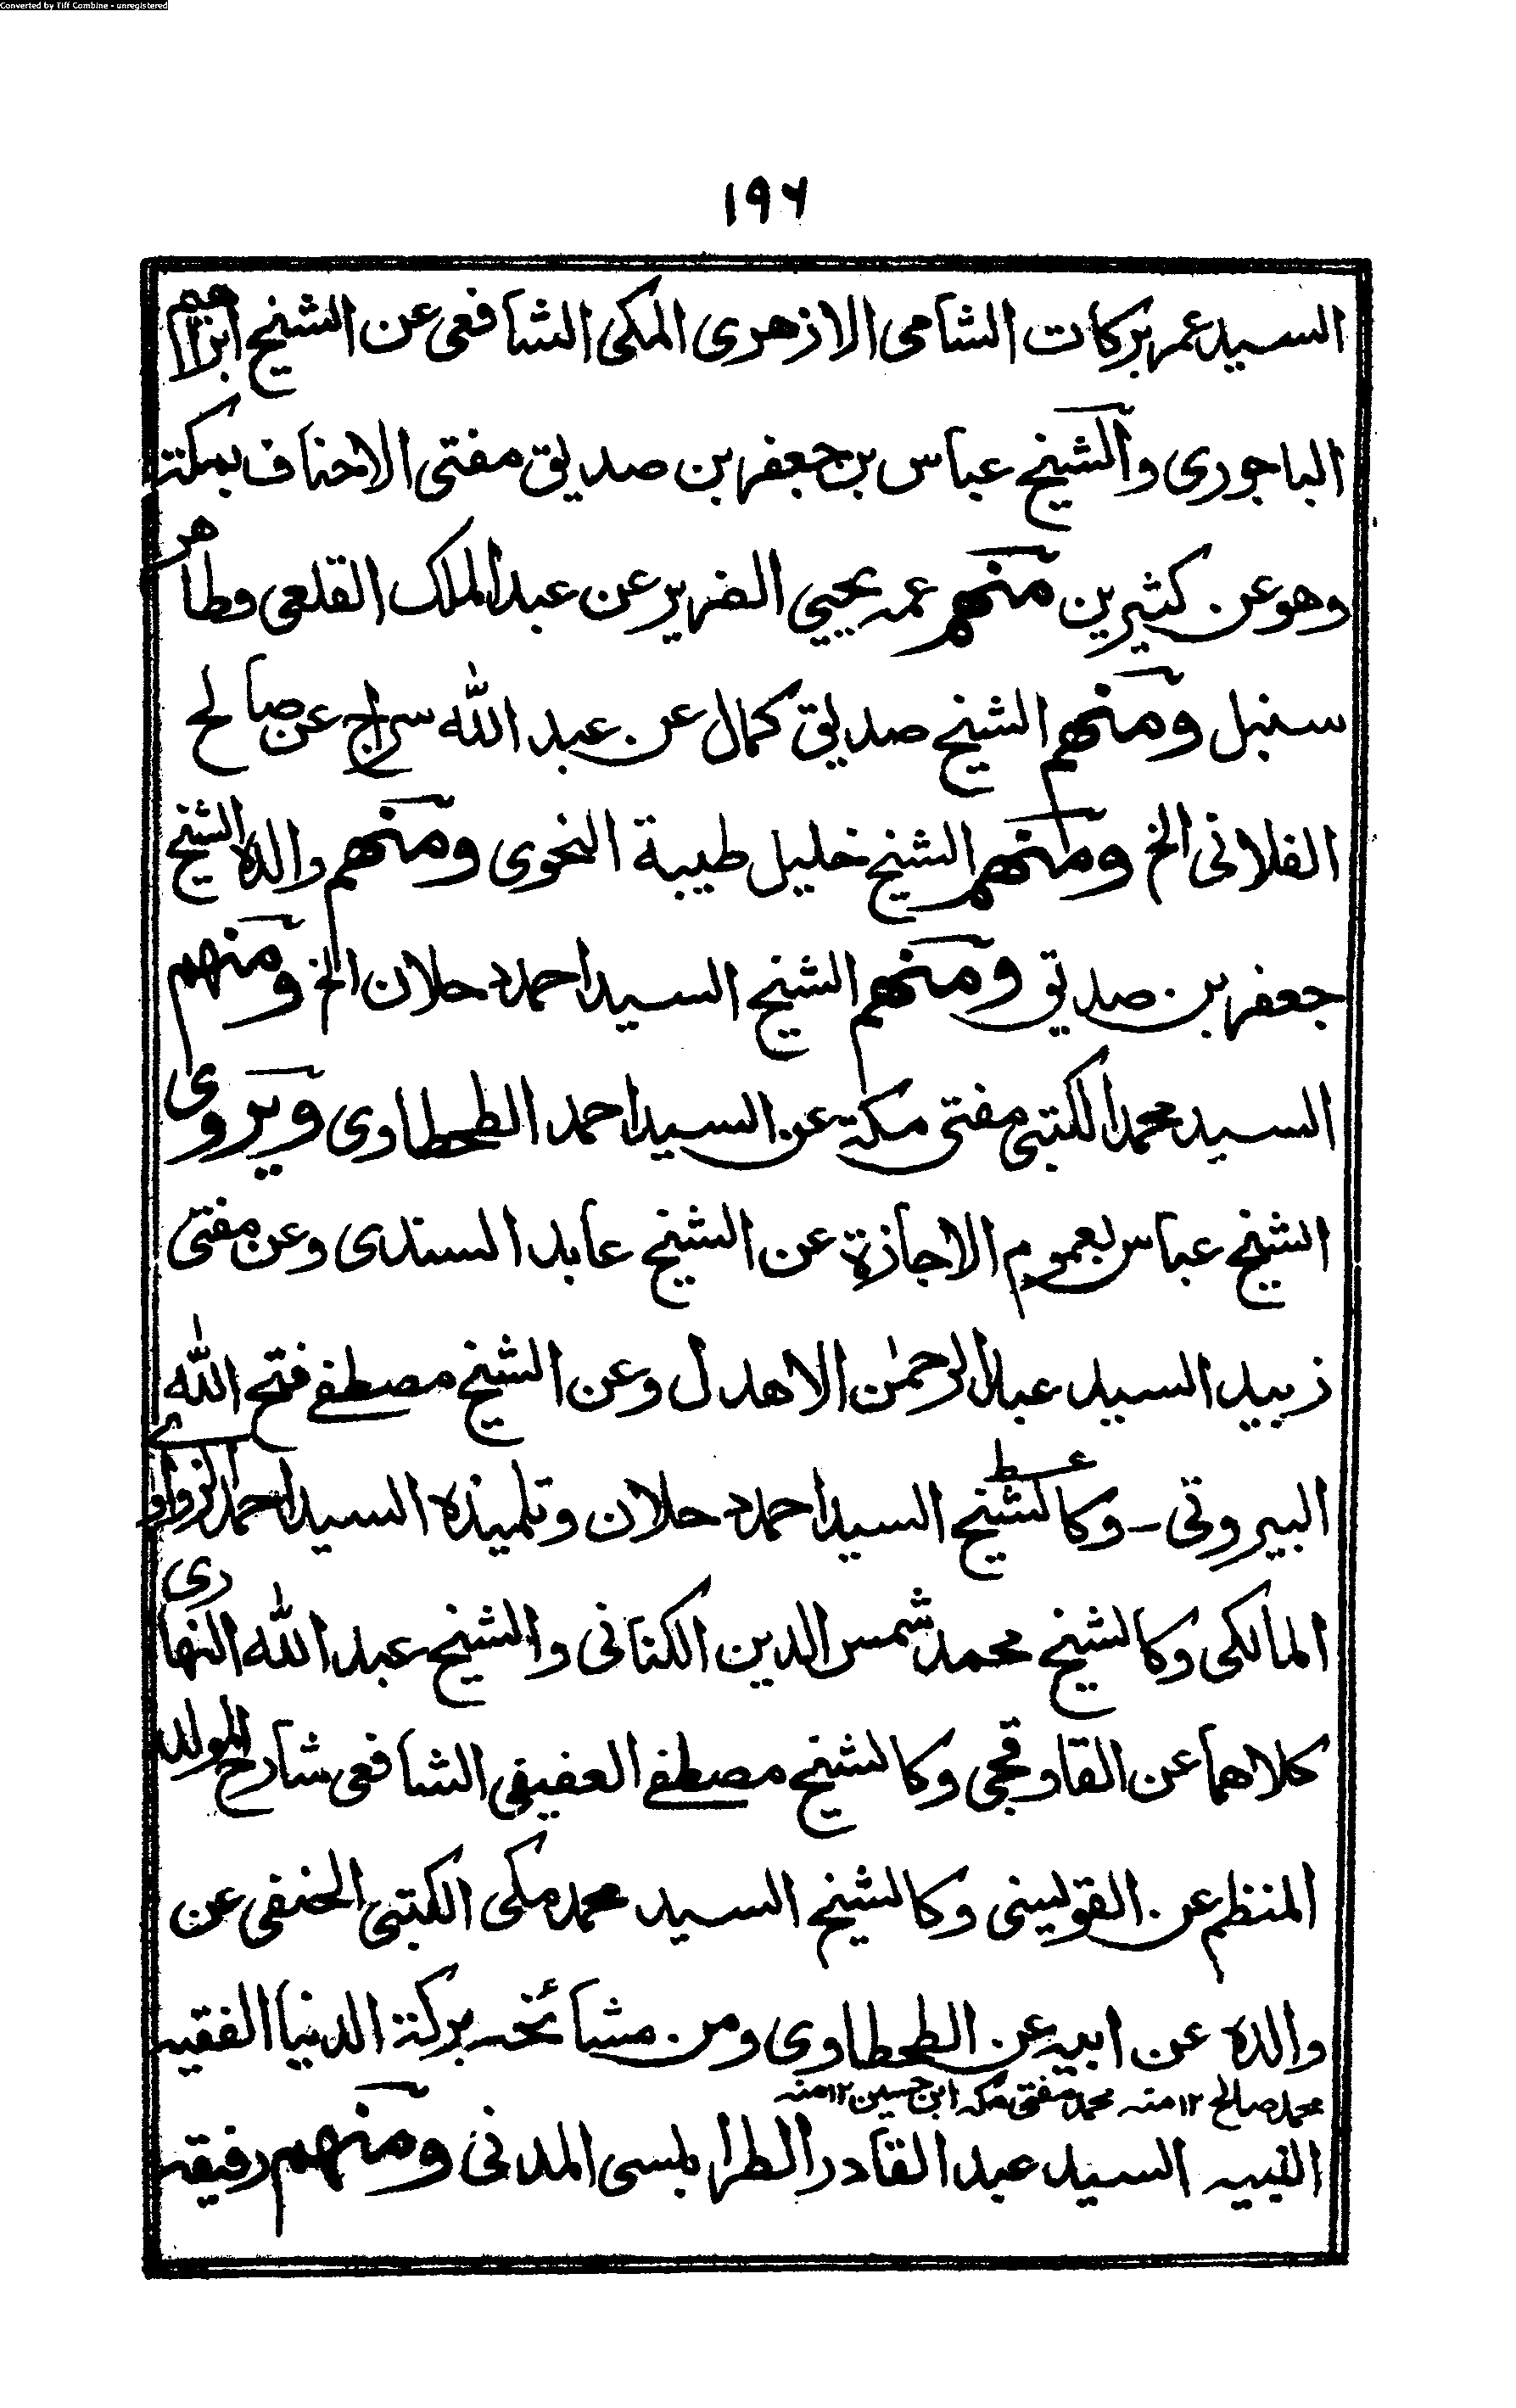 Converted by Tiff Combine - unregistered
١٩٦
السيد عمر بركات الشامى الازهرى المكى الشافعى عن الشيخ ابراهيم
الباجورى والشيخ عباس بن جعفر بن صديق مفتى الاحناف بمكة
وهو عن كثيرين منهم عمه يحيي الضرير عن عبد الملك القلعى وطاهر
سنبل ومنهم الشيخ صديق كمال عن عبد الله سراج عن صالح
الفلانى الخ ومنهم الشيخ خليل طيبة النحوى ومنهم والده الشيخ
جعفر بن صديق ومنهم الشيخ السيد احمد دحلان الخ ومنهم
السيد محمد الكتبى مفتى مكة عن السيد احمد الطحطاوى ويروى
الشيخ عباس بعموم الاجازة عن الشيخ عابد السندى وعن مفتى
زبيد السيد عبد الرحمٰن الاهدل وعن الشيخ مصطفے فتح الله
البيروتى - وكالشيخ السيد احمد دحلان وتلميذه السيد احمد الزواوے
المالكى وكالشيخ محمد شمس الدين الكنانى والشيخ عبد الله النهارى
كلاهما عن القاوقجى وكالشيخ مصطفے العفيفى الشافعى شارح المولد
المنظم عن القويسنى وكالشيخ السيد محمد مكى الكتبى الحنفى عن
والده عن ابيه عن الطحطاوى ومن مشائخه بركة الدنيا الفقيه
محمد صالح ١٢ منه محمد مفتى مكه ابن حسين ١٢ منه
النبيه السيد عبد القادر الطرابلسى المدنى ومنهم رفيقه